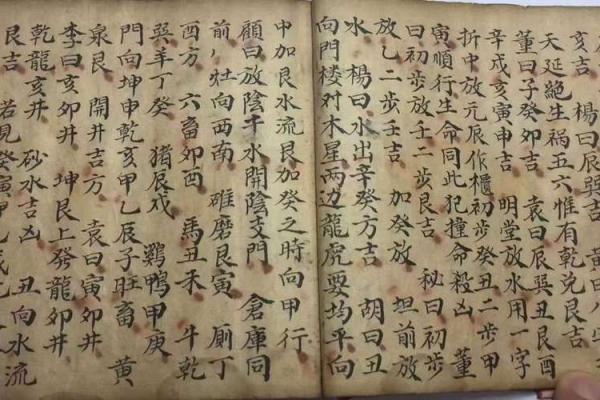 亥吉　楊曰辰巽吉　黃曰八字
天延絕生禍五六惟有乾兌艮吉
董曰子癸卯吉　袁曰辰巽丑艮酉
辛戌亥寅申吉　明堂放水用一字
折中放元辰作櫃初步癸丑二步甲
寅順行生命同此犯撞命殺凶　董
曰初步放壬二步艮吉　秘曰初步
放乙二步壬吉　加癸放　坦前放
水　楊曰水出辛癸方吉　胡曰丑
向門楼对木星两边龍虎要均平向
申加艮水流艮加癸之時向甲行
顧曰放陰干水開陰支門　倉庫同
前灶向西南　碓磨艮寅　厠丁
酉方　六畜卯酉　馬丑未　斗乾
巽羊丁癸　猪辰戌　鷄鴨甲庚
門向坤申乾亥甲乙辰子旺畜　黃
泉艮　開井吉方　袁曰寅卯井
李曰亥卯井　坤艮上癸龍卯井
乾龍亥井　砂水吉凶　丑向水流
艮吉　若見癸寅甲